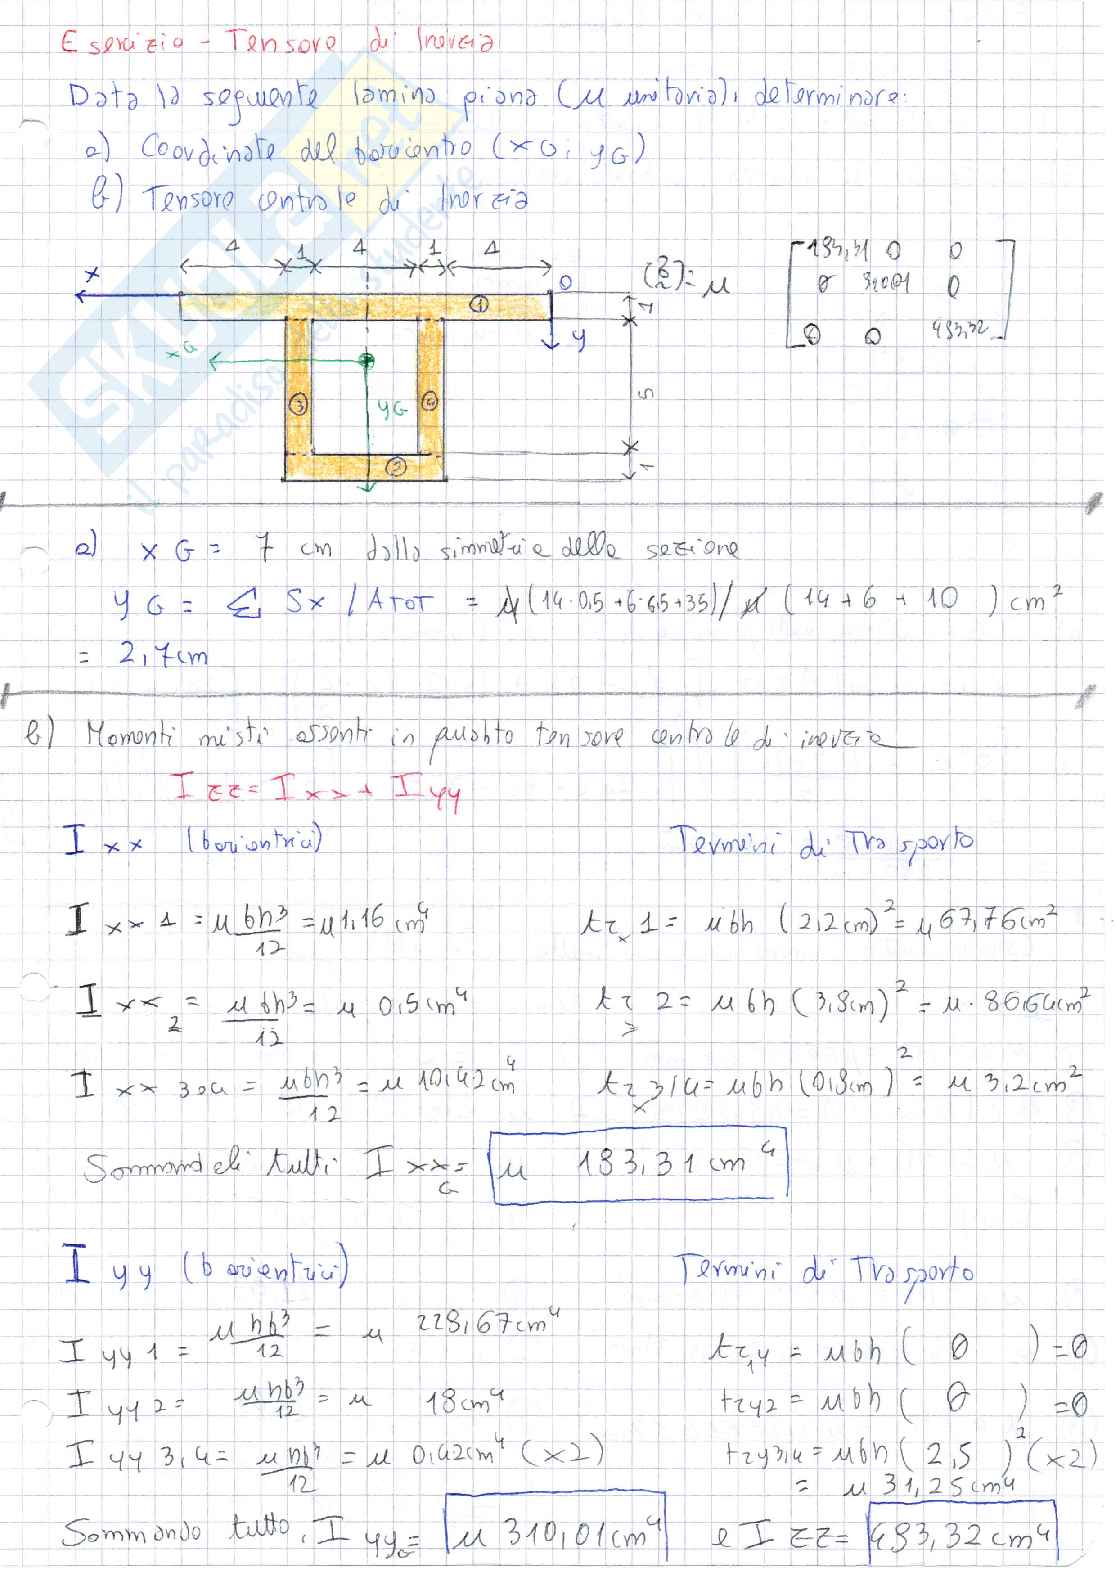 Esercizio - Tensore di Inerzia
Data la seguente lamina piana (μ unitaria), determinare:
a) Coordinate del baricentro (xG; yG)
b) Tensore centrale di Inerzia
4 1 4 1 4
x
O
y
1
5
1
xG
yG
① ② ③ ④
= μ
183,31 0 0
0 310,01 0
0 0 493,32
a) xG = 7 cm dalla simmetria della sezione
yG = Σ Sx / ATOT = μ(14·0,5+6·6,5+35)/μ (14+6+10) cm²
= 2,7cm
b) Momenti misti assenti in quanto tensore centrale di inerzia
Izz = Ixx + Iyy
Ixx (baricentrici) Termini di Trasporto
Ixx1 = μbh³/12 = μ1,16 cm⁴ trx1 = μbh (2,2cm)² = μ67,76cm²
Ixx2 = μbh³/12 = μ 0,5cm⁴ trx2 = μbh (3,8cm)² = μ·86,64cm²
Ixx 3o4 = μbh³/12 = μ 10,42cm⁴ trx3/4 = μbh (0,8cm)² = μ 3,2cm²
Sommandoli tutti IxxG = μ 183,31 cm⁴
Iyy (baricentrici) Termini di Trasporto
Iyy1 = μhb³/12 = μ 228,67cm⁴ tr1y = μbh ( 0 ) = 0
Iyy2 = μhb³/12 = μ 18cm⁴ try2 = μbh ( 0 ) = 0
Iyy 3,4 = μhb³/12 = μ 0,42cm⁴ (x2) try3,4 = μbh (2,5)² (x2)
= μ 31,25cm⁴
Sommando tutto, IyyG = μ 310,01cm⁴ e Izz = 493,32 cm⁴
SKUOLA.net
il paradiso dello studente